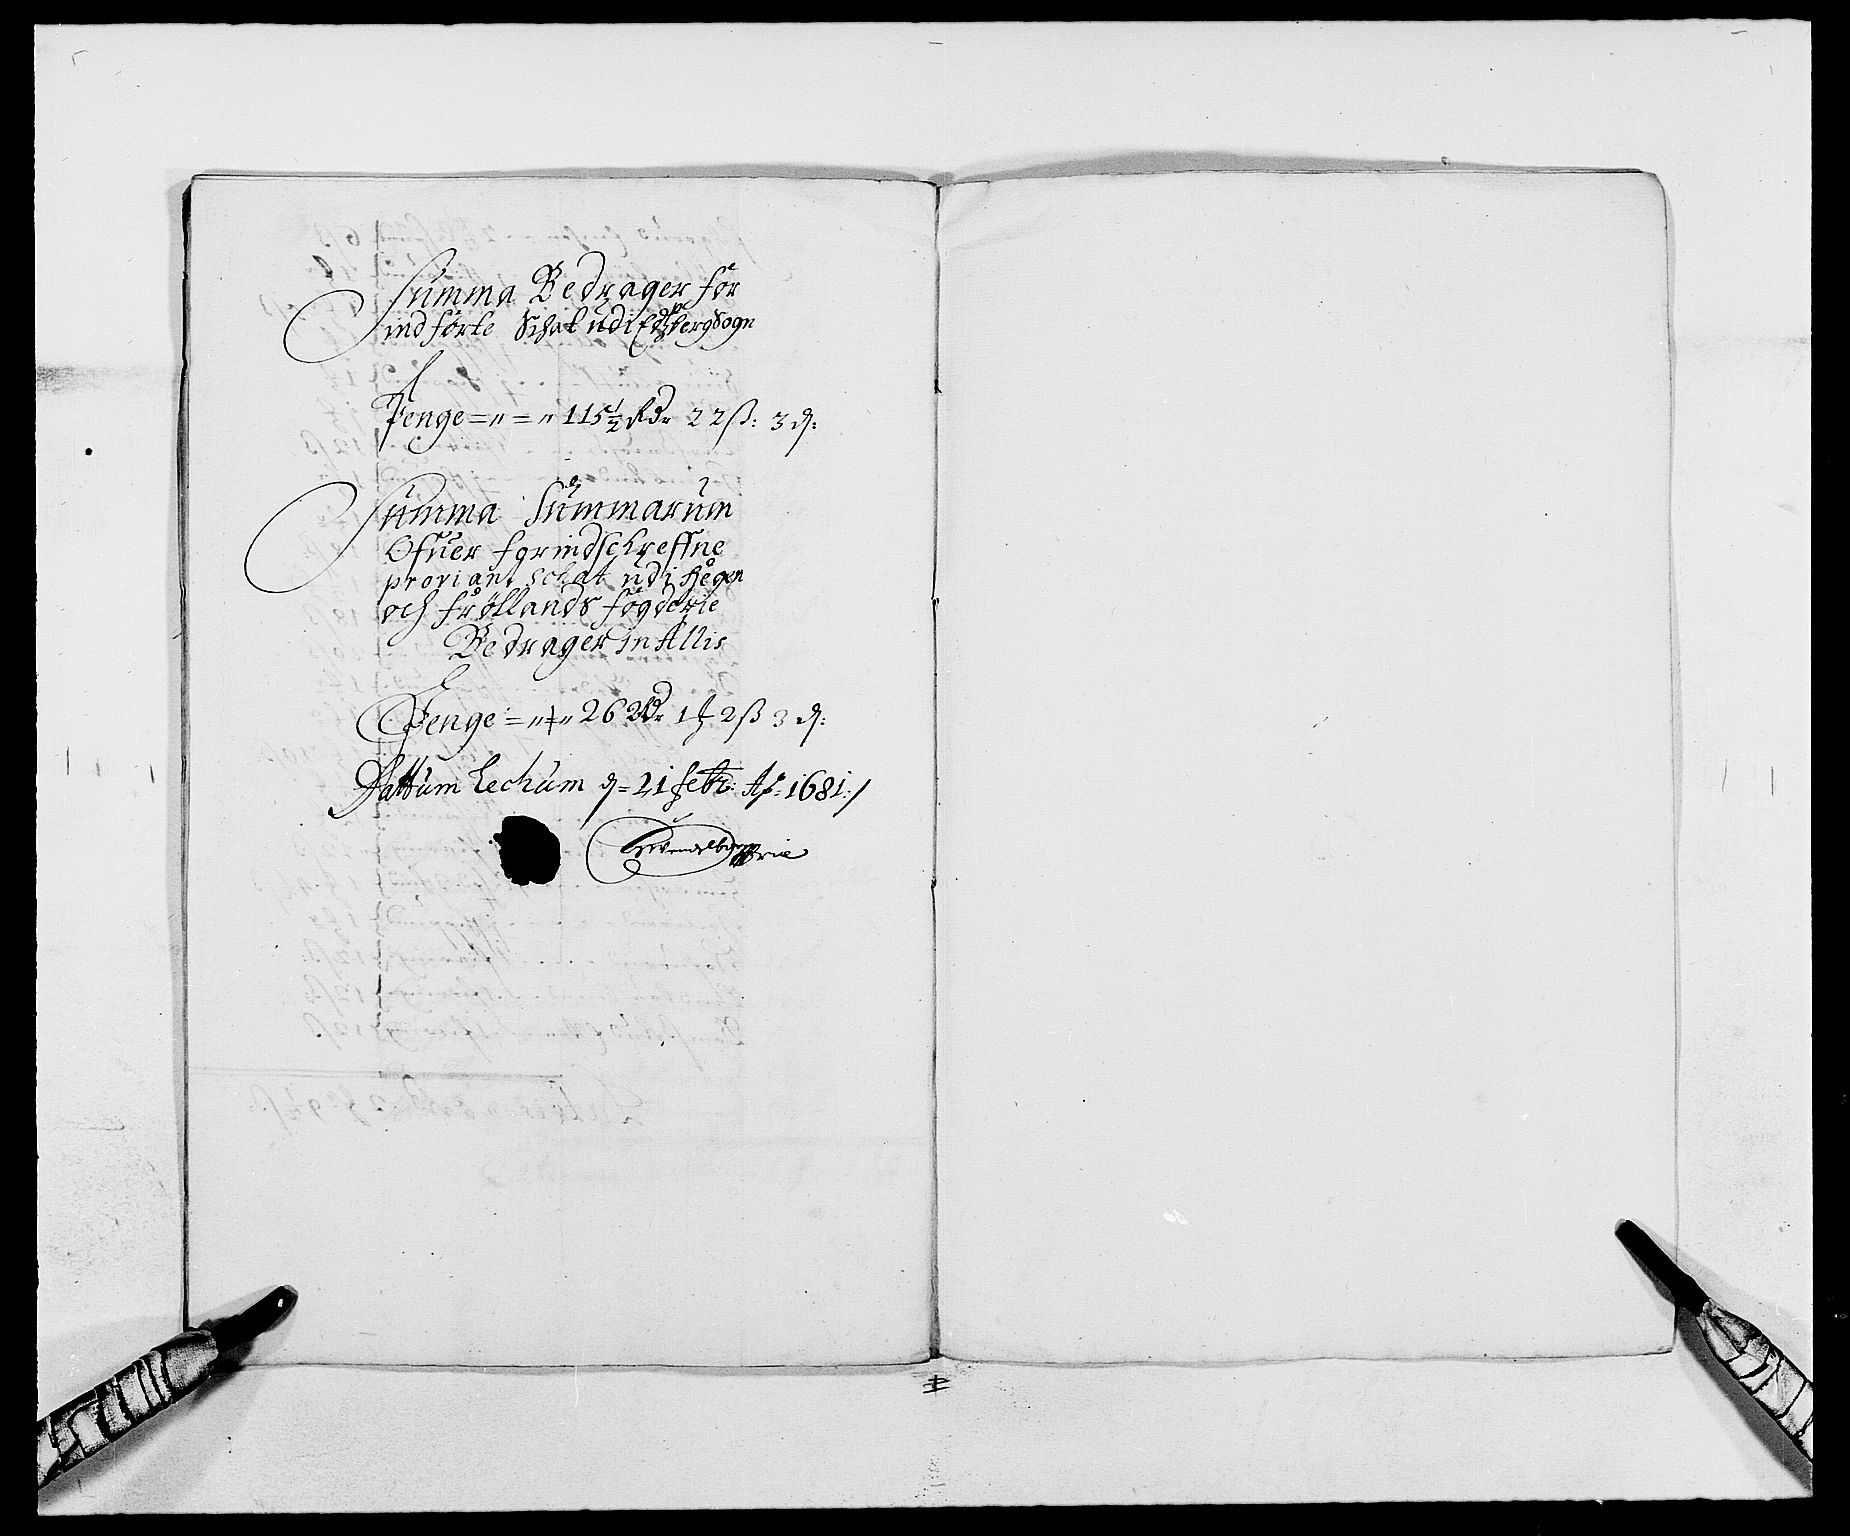 Summa Bedrager for
indförte Schat udi Edsberg Sogn
Penge=„=„ 115½ Rdr 22ß: 3 ₰:
Summa Summarum
Ofuer f๏rindschreffne
proviant schat udi Hegen
och Frøllands fögderie
Bedrager in Allis
Penge=„=„ 262 Rdr 1 ₰ 2ß 3 ₰:
Dattum Lechum d= 21 febr: Ao: 1681:/